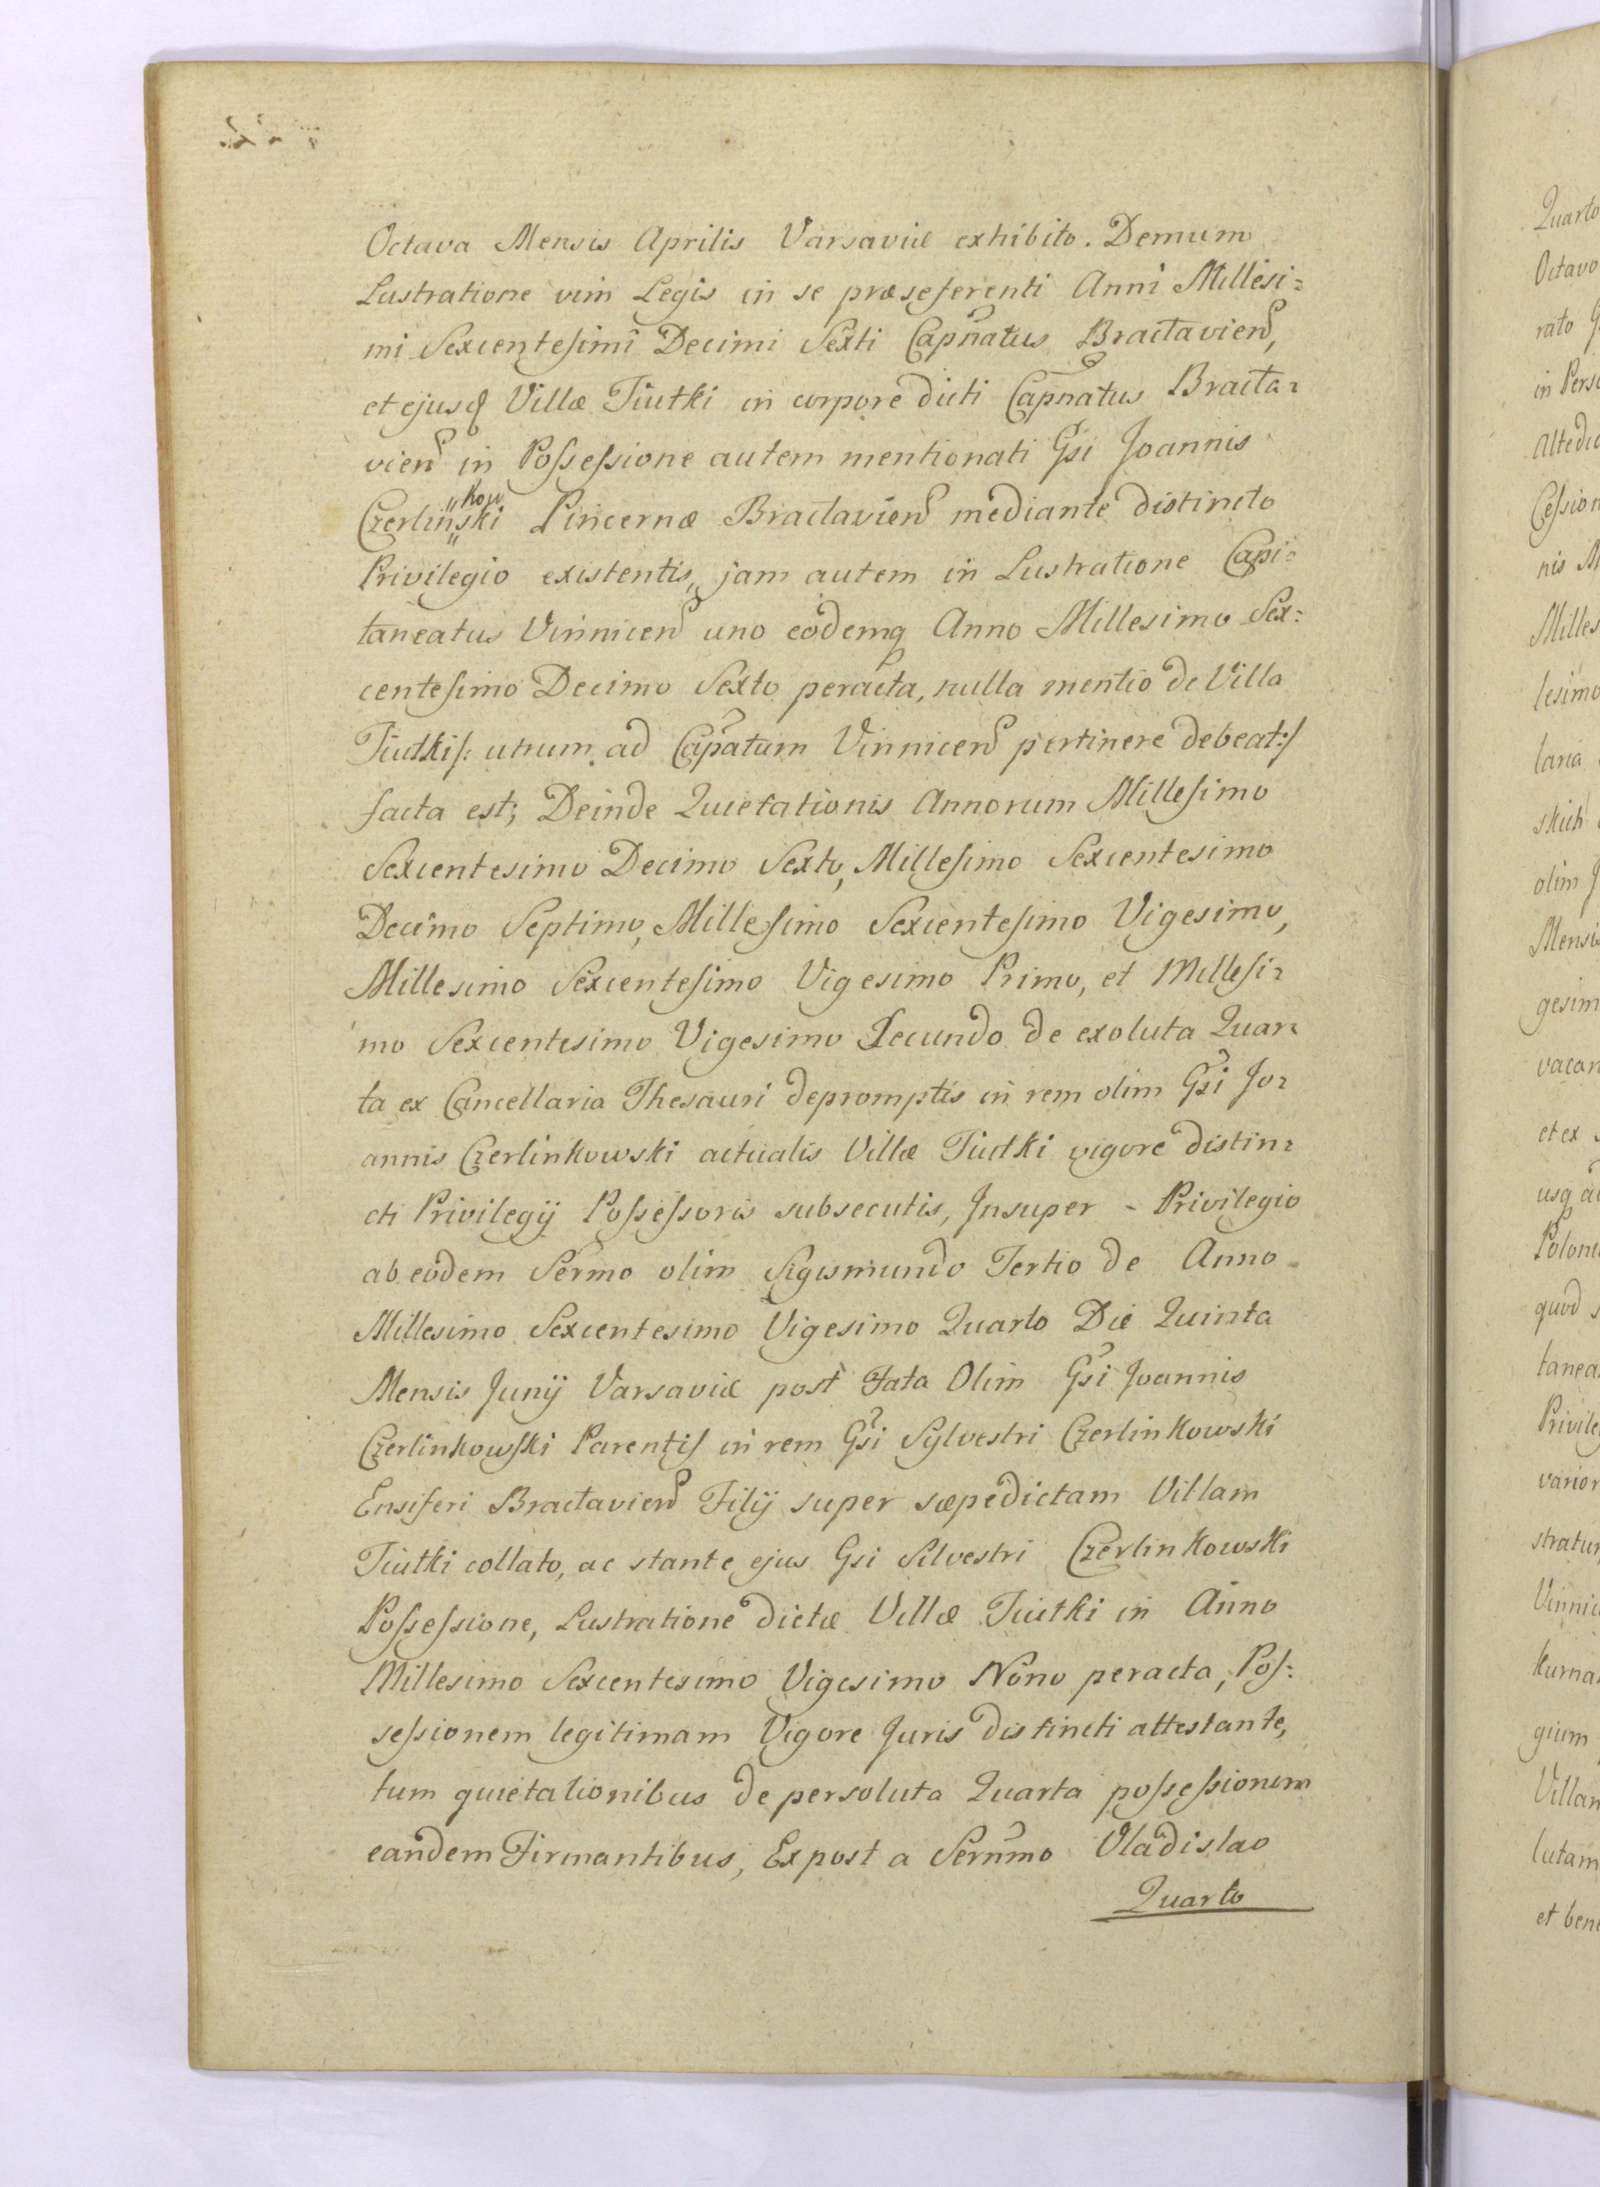 Octava Mensis Aprilis Varsaviæ exhibito. Demum
Lustratione vim Legis in se præseferenti Anni Millesi=
mi Sexcentesimi Decimi Sexti Capnatus Bractavien,
et ejusq Villæ Tiutki in corpore dicti Capnatus Bracta=
vien in Possessione autem mentionati Gsi Joannis
kow
Czerlinski Pincernæ Bractavien mediante distincto
Privilegio existentis, jam autem in Lustratione Capi=
taneatus Vinnicen uno eodemq Anno Millesimo Sex=
centesimo Decimo Sexto peracta, nulla mentio de Villa
Tiutki /: utrum ad Capatum Vinnicen pertinere debeat :/
facta est; Deinde Quietationis Annorum Millesimo
Sexcentesimo Decimo Sexto, Millesimo Sexcentesimo
Decimo Septimo, Millesimo Sexcentesimo Vigesimo,
Millesimo Sexcentesimo Vigesimo Primo, et Millesi=
mo Sexcentesimo Vigesimo Secundo de exoluta Quar=
ta ex Cancellaria Thesauri depromptis in rem olim Gsi Jo=
annis Czerlinkowski actualis Villæ Tiutki vigore distin=
cti Privilegij Possessoris subsecutis, Insuper - Privilegio
ab eodem Sermo olim Sigismundo Tertio de Anno
Millesimo Sexcentesimo Vigesimo Quarto Die Quinta
Mensis Junij Varsaviæ post Fata Olim Gsi Joannis
Czerlinkowski Parentis in rem Gsi Sylvestri Czerlinkowski
Ensiferi Bractavien Filij super sæpedictam Villam
Tiutki collato, ac stante ejus Gsi Silvestri Czerlinkowski
Possessione, Lustratione dictæ Villæ Tiutki in Anno
Millesimo Sexcentesimo Vigesimo Nono peracta, Pos=
sessionem legitimam Vigore Juris distincti attestante,
tum quietationibus de persoluta Quarta possessionem
eandem Firmantibus, Expost a Sernmo Vladislao
Quarto
Quarto
Octavo
rato
in Pers
Altedic
Cession
nis M
Milles
lesimo
laria
skich
olim J
Mensis
gesim
vacan
et ex
usq ad
Polon
quod s
tanea
Privile
varior
stratu
Vinni
kurna
gium
Villam
lutam
et bene